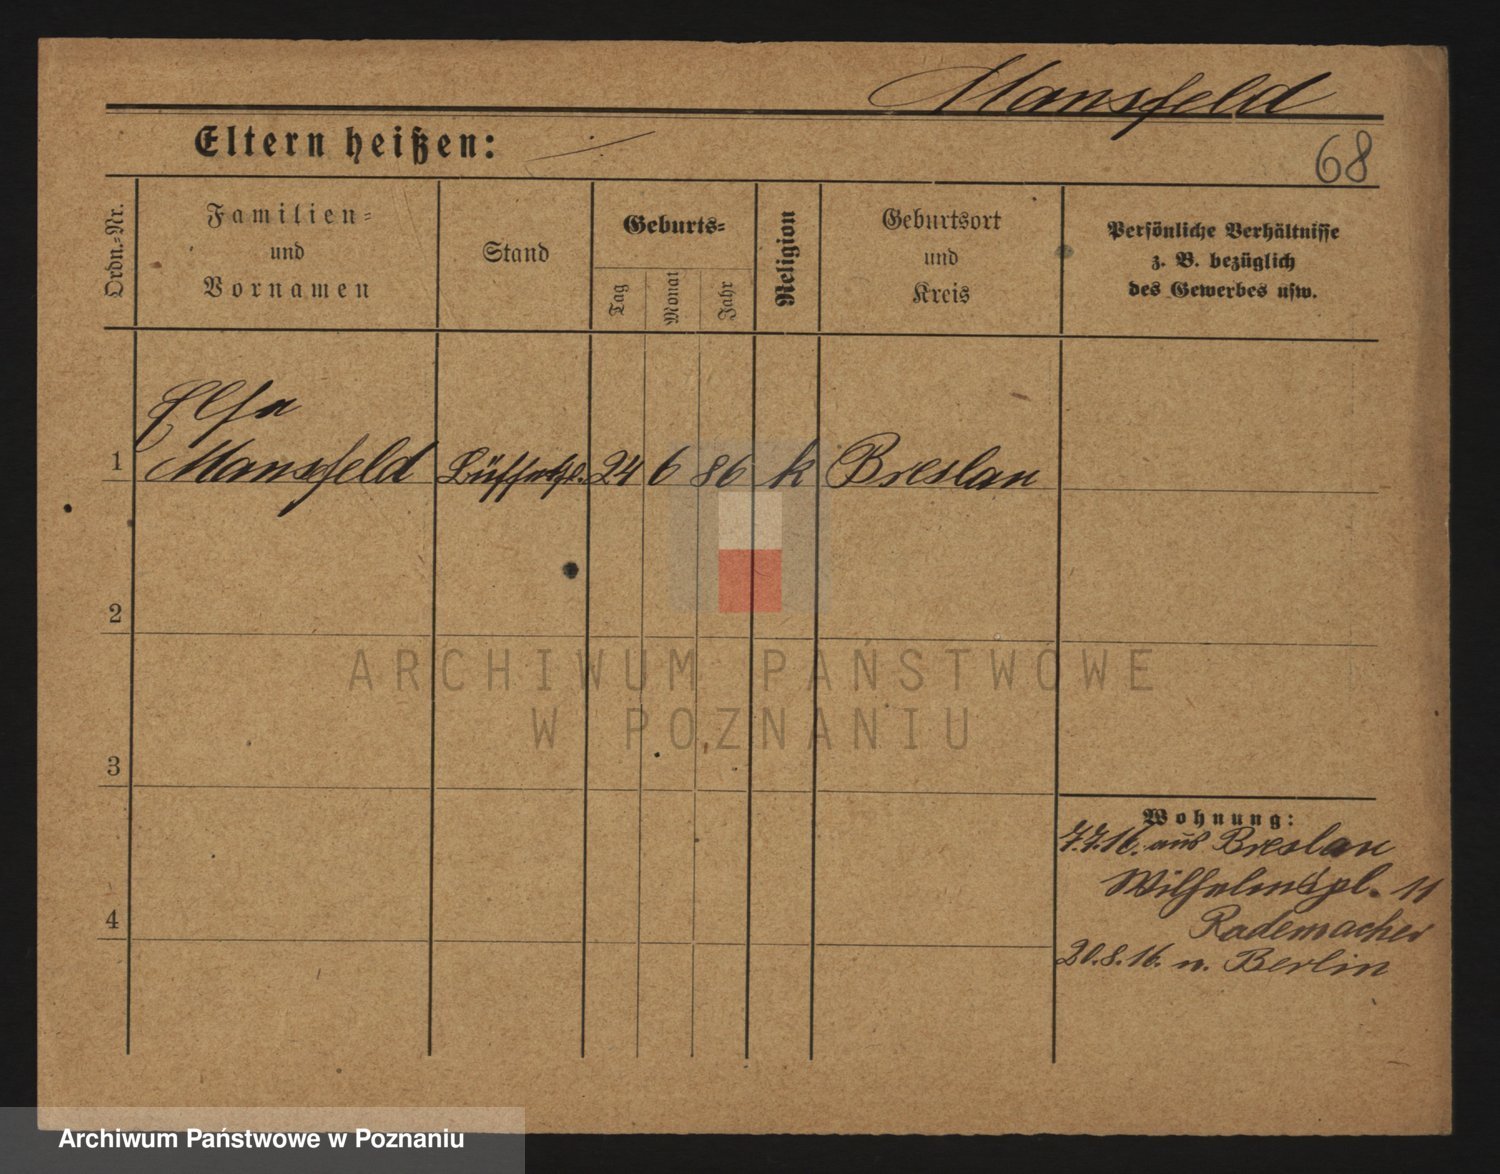 Mansfeld
Eltern heißen:
68
Ordn.-Nr.
Familien-
und
Vornamen
Stand
Geburts-
Tag
Monat
Jahr
Religion
Geburtsort
und
Kreis
Persönliche Verhältnisse
z. B. bezüglich
des Gewerbes usw.
Elsa
1 Mansfeld Büffetfl. 24 6 86 k Breslau
2
3
4
Wohnung:
7.7.16. aus Breslau
Wilhelmspl. 11
Rademacher
20.8.16. n. Berlin
ARCHIWUM PAŃSTWOWE
W POZNANIU
Archiwum Państwowe w Poznaniu